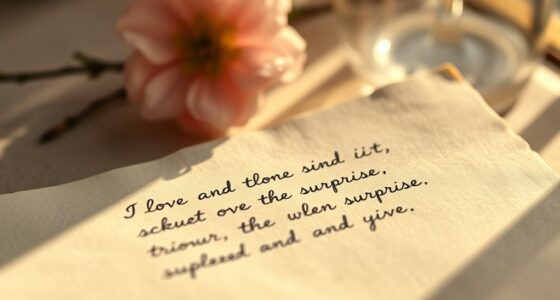 I love and tlone sind iit,
sckuet ove the surprise,
triour, the wlen surprise.
suplesed and and yive.